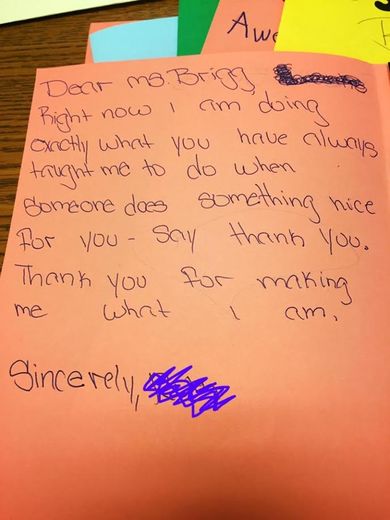 Awe
Dear Ms. Brigg
Right now i am doing
exactly what you have always
taught me to do when
someone does something nice
for you - say thank you.
Thank you for making
me what i am.
Sincerely,